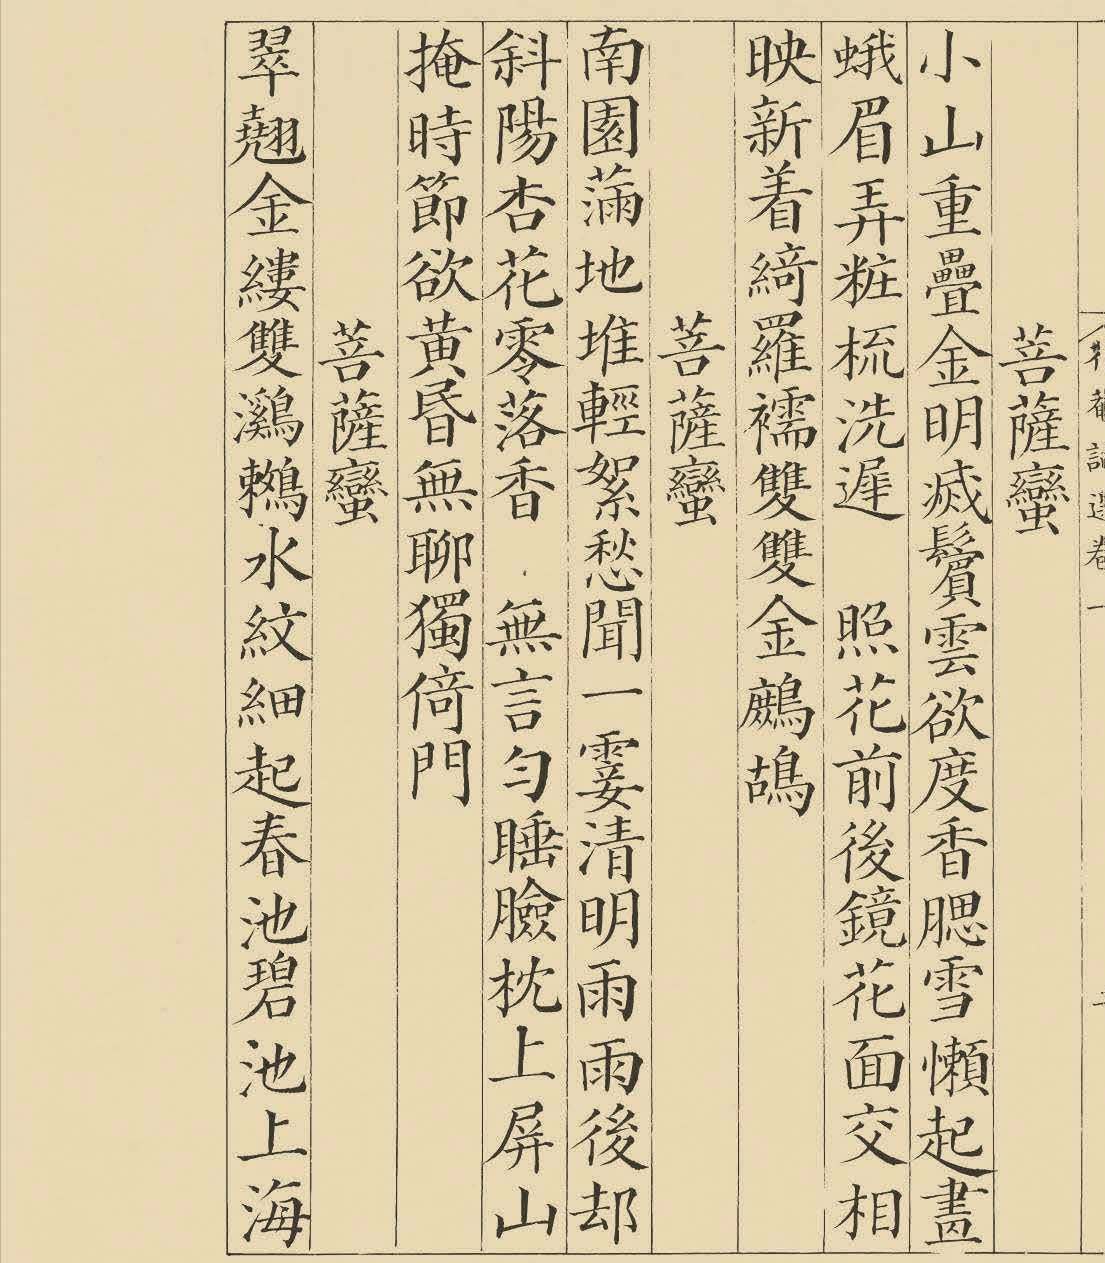 菩薩蠻
小山重疊金明滅鬢雲欲度香腮雪懶起畫
蛾眉弄粧梳洗遲　照花前後鏡花面交相
映新着綺羅襦雙雙金鷓鴣
菩薩蠻
南園滿地堆輕絮愁聞一霎清明雨雨後却
斜陽杏花零落香　無言勻睡臉枕上屏山
掩時節欲黄昏無聊獨倚門
菩薩蠻
翠翹金縷雙鸂鶒水紋細起春池碧池上海